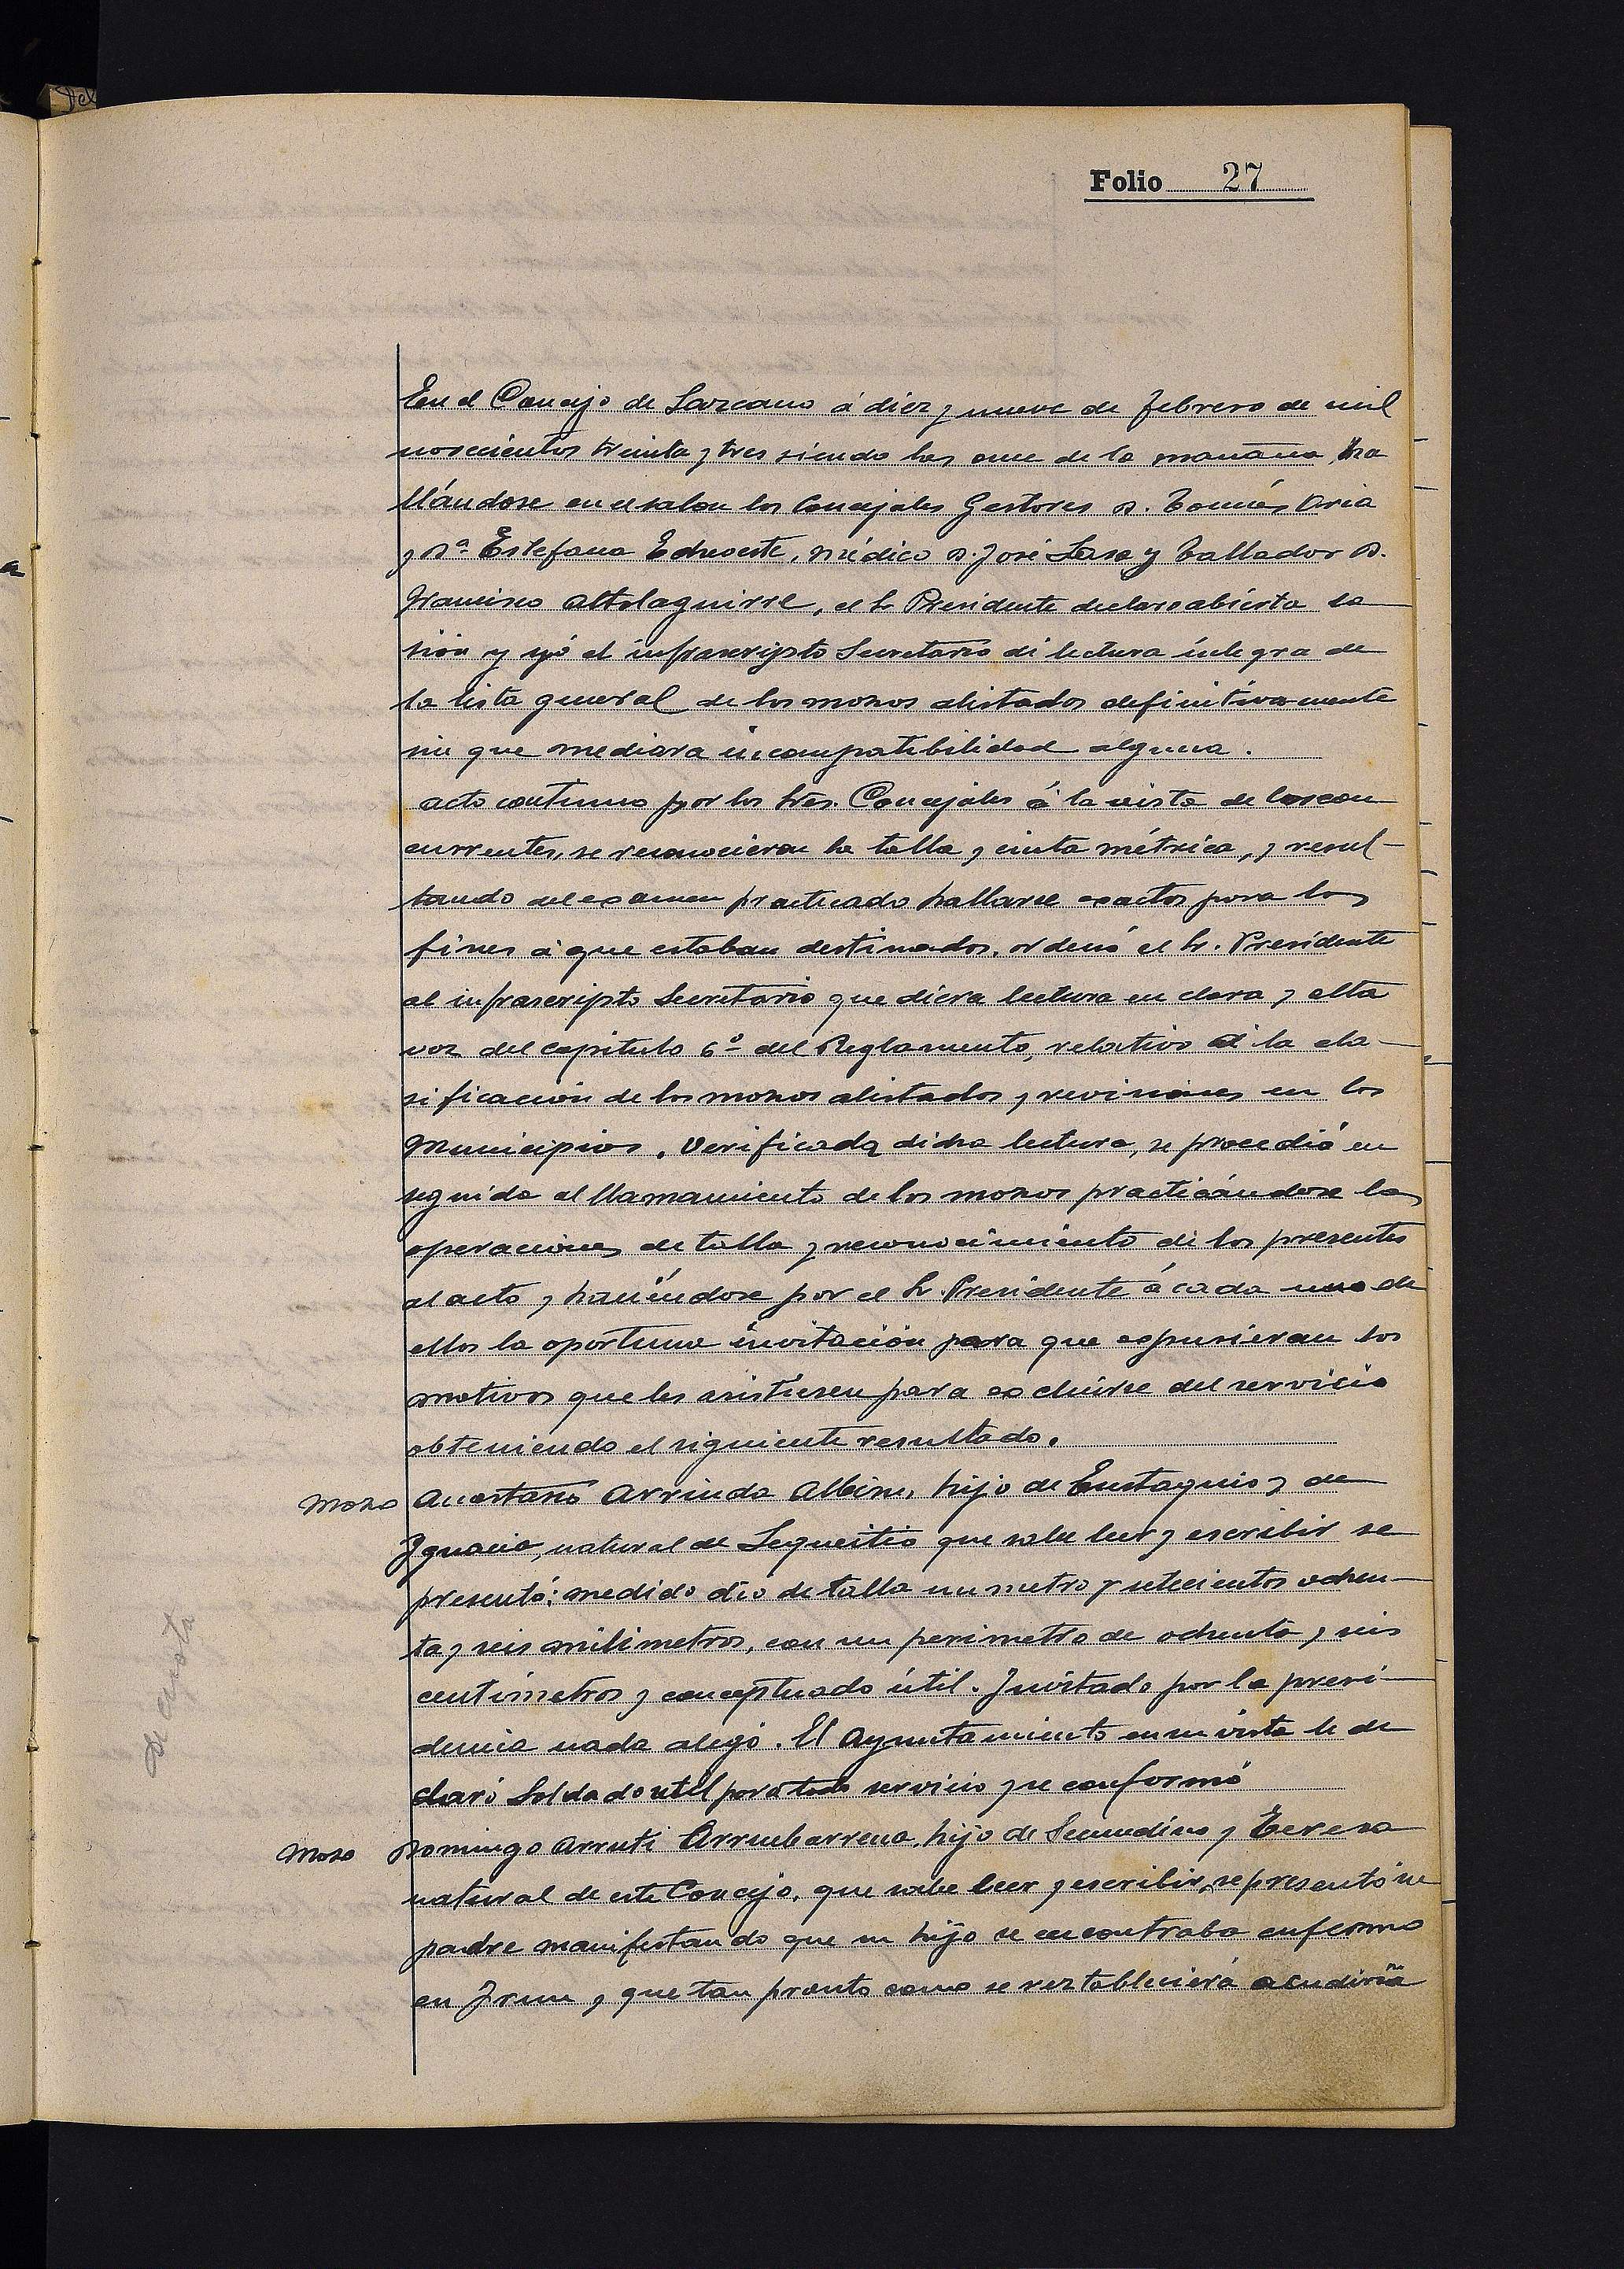 Folio 27
En el Concejo de Lazcano á diez y nueve de febrero de mil
novecientos treinta y tres siendo las once de la mañana, ha
llándose en el salon los Concejales Gestores D. Tomás Aria
y Dª Estefana Echeveste, médico D. José Lasa y tallador D.
Francisco Altolaguirre, el Sr Presidente declaro abierta se
sión y yó el infrascripto Secretario di lectura íntegra de
la lista general de los mozos alistados definitivamente
sin que mediara incompatibilidad alguna.
acto continuo por los Sres. Concejales á la vista de los con
currentes, se reconocieron la talla y cinta métrica, y resul-
tando del examen practicado hallarse exactos para los
fines á que estaban destinados, ordenó el Sr. Presidente
al infrascripto Secretario que diera lectura en clara y alta
voz del capitulo 6º del Reglamento, relativo á la cla-
sificación de los mozos alistados y revisiones en los
Municipios. Verificada dicha lectura, se procedió en
seguida al llamamiento de los mozos practicándose las
operaciones de talla y reconocimiento de los presentes
al acto y haciéndose por el Sr. Presidente á cada uno de
ellos la oportuna invitación para que expusieran los
motivos que les asistiesen para excluirse del servicio
obteniendo el siguiente resultado.
Mozo Arrinda Albino, hijo de Eustaquio y de
Ignacia, natural de Lequeitio que sabe leer y escribir se
presentó; medido dió de talla un metro y setecientos ochen-
ta y seis milimetros, con un perimetro de ochenta y seis
centímetros y conceptuado útil. Invitado por la presi-
dencia nada alegó. El Ayuntamiento en su vista le de
claró Soldado util para todo servicio y se conformó
Mozo Domingo Arruti Arrubarrena, hijo de Secundino y Teresa
natural de este Concejo, que sabe leer y escribir, se presentó su
padre manifestando que su hijo se encontraba enfermo
en Irun y que tan pronto como se restableciera acudiria